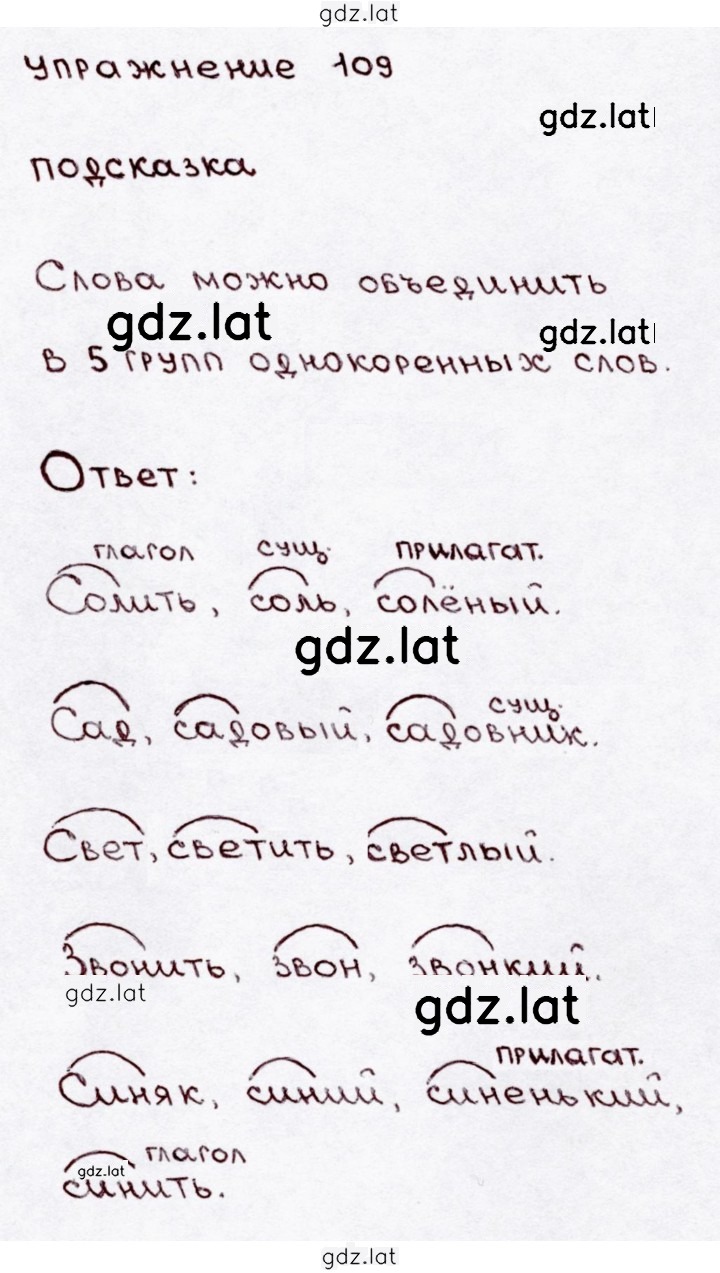 gdz.lat
упражнение 109
gdz.lat
подсказка
Слова можно объединить
gdz.lat
gdz.lat
в 5 групп однокоренных слов.
Ответ:
глагол сущ. прилагат.
Солить, соль, солёный.
gdz.lat
сущ.
Сад, садовый, садовник.
Свет, светить, светлый.
Звонить, звон, звонкий.
gdz.lat
gdz.lat
прилагат.
Синяк, синий, синенький,
глагол
gdz.lat
синить.
gdz.lat